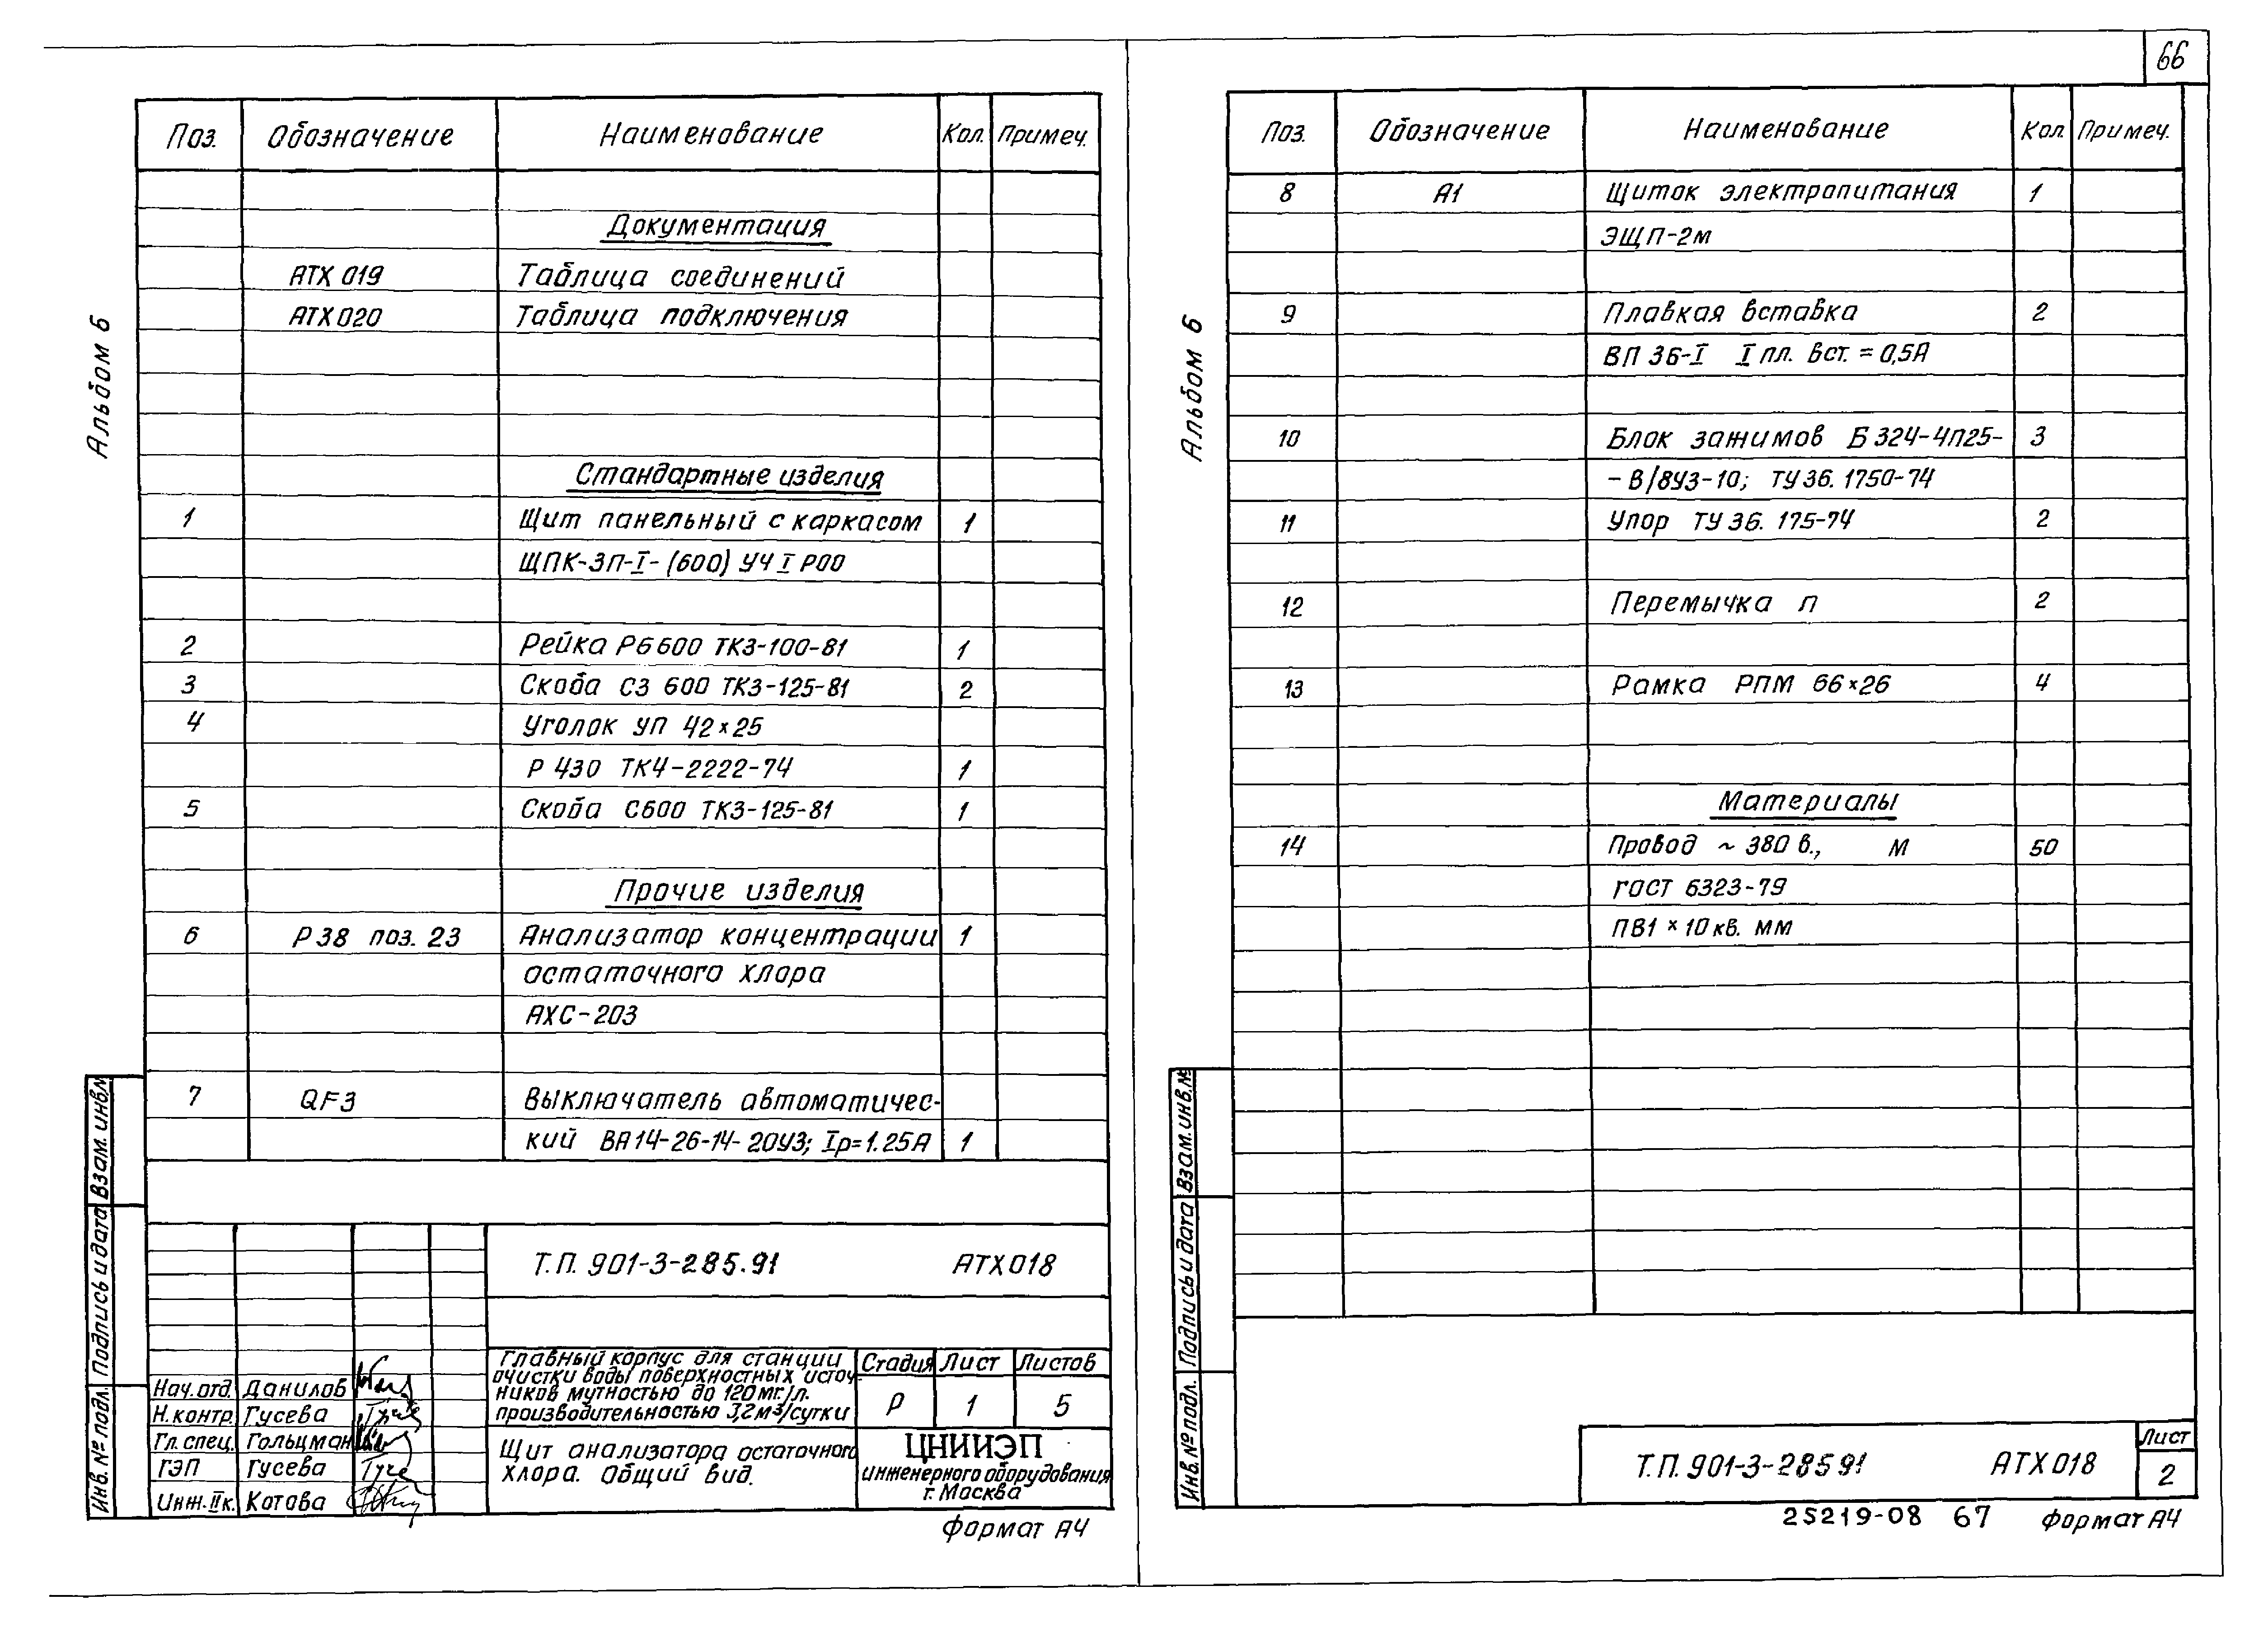 66
Альбом 6
Поз. Обозначение Наименование Кол. Примеч.
Документация
АТХ 019 Таблица соединений
АТХ 020 Таблица подключения
Стандартные изделия
1 Щит панельный с каркасом 1
ЩПК-ЗП-I-(600) УЧ I Р00
2 Рейка Р6600 ТК3-100-81 1
3 Скоба С3 600 ТК3-125-81 2
4 Уголок УП 42×25
Р 430 ТК4-2222-74 1
5 Скоба С600 ТК3-125-81 1
Прочие изделия
6 Р38 поз. 23 Анализатор концентрации 1
остаточного хлора
АХС-203
7 QF3 Выключатель автоматичес-
кий ВА14-26-14-20У3; Iр=1.25А 1
Т.П. 901-3-285.91 АТХ018
Главный корпус для станции
очистки воды поверхностных источ-
ников мутностью до 120мг/л.
производительностью 3,2м³/сутки
Стадия Лист Листов
Р 1 5
Щит анализатора остаточного
хлора. Общий вид.
ЦНИИЭП
инженерного оборудования
г. Москва
Нач. отд. Данилов
Н. контр. Гусева
Гл. спец. Гольцман
ГЭП Гусева
Инж. IIк. Котова
Инв. № подл. Подпись и дата Взам. инв.№
Формат А4
Альбом 6
Поз. Обозначение Наименование Кол. Примеч.
8 А1 Щиток электропитания 1
ЭЩП-2м
9 Плавкая вставка 2
ВП 36-I I пл. вст. = 0,5А
10 Блок зажимов Б324-4П25- 3
-В/8У3-10; ТУ36. 1750-74
11 Упор ТУ 36. 175-74 2
12 Перемычка П 2
13 Рамка РПМ 66×26 4
Материалы
14 Провод ~ 380 в., м 50
ГОСТ 6323-79
ПВ1 × 10 кв. мм
Инв. № подл. Подпись и дата Взам. инв.№
Т.П. 901-3-28591 АТХ018
Лист
2
25219-08 67 Формат А4